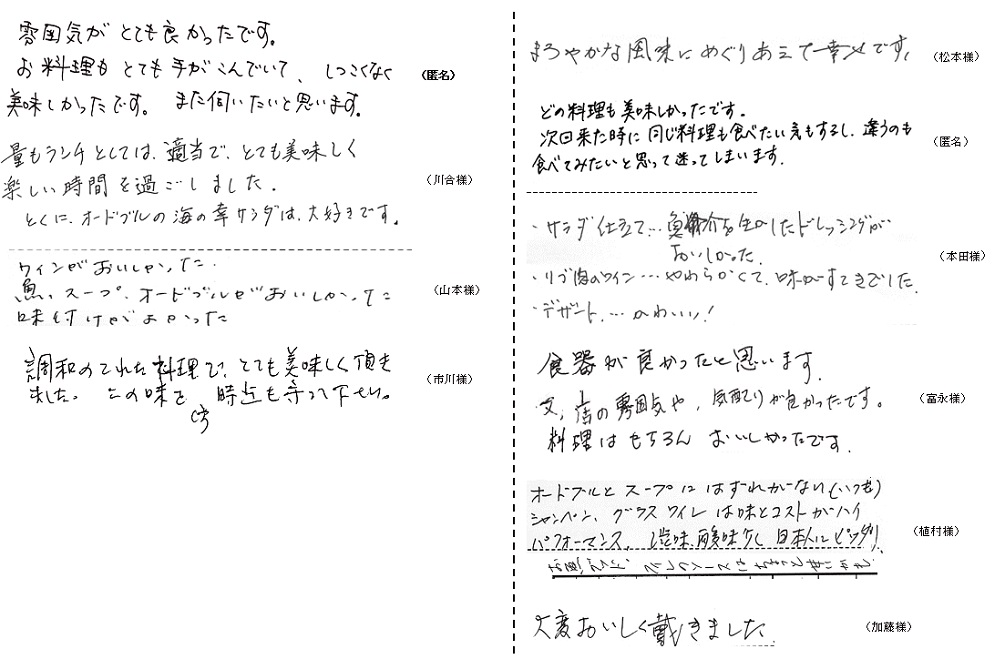 雰囲気がとても良かったです。
お料理もとても手がこんでいて、しつこくなく
美味しかったです。また伺いたいと思います。
(匿名)
量もランチとしては、適当で、とても美味しく
楽しい時間を過ごしました。
とくに、オードブルの海の幸サラダは、大好きです。
(川合様)
ワインがおいしかった。
魚、スープ、オードブルがおいしかった
味付けがよかった
(山本様)
調和のとれた料理で、とても美味しく頂き
ました。この味を 時迄も守って下さい。
(市川様)
まろやかな風味にめぐりあえて幸せです。
(松本様)
どの料理も美味しかったです。
次回来た時に同じ料理も食べたい気もするし、違うのも
食べてみたいと思って迷ってしまいます。
(匿名)
・サラダ仕立て…魚介を生かしたドレッシングが
おいしかった。
・リブ肉のワイン…やわらかくて、味がすてきでした。
・デザート、…かわいい!
(本田様)
食器が良かったと思います。
又、店の雰囲気や、気配りが良かったです。
料理はもちろんおいしかったです。
(富永様)
オードブルとスープにはずれがない(いつも)
シャンペン、グラスワインは味とコストがハイ
パフォーマンス。渋味、酸味少く日本人にピッタリ。
(植村様)
大変おいしく戴きました。
(加藤様)